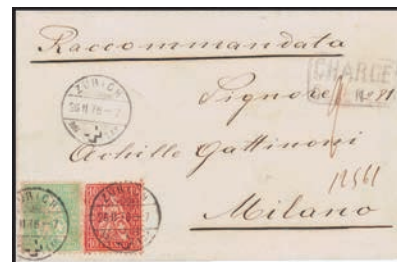 Raccommandata
CHARGÉ
No 81
ZÜRICH
Signore
Achille Gattinoni
12561
Milano
ZÜRICH
ZÜRICH